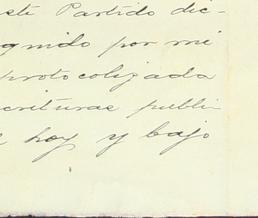 este Partido dic-
gnido por mi
protocolizada
crituras publi
e hoy y bajo